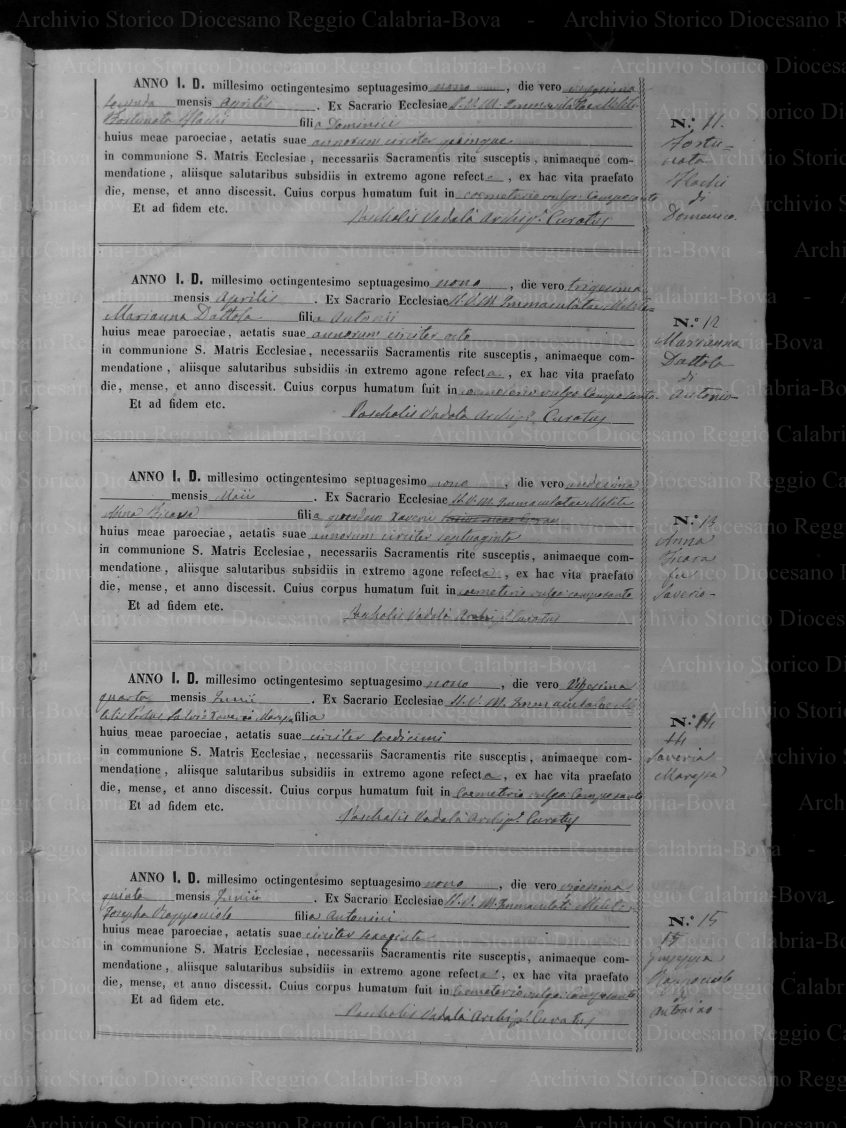 ANNO I. D. millesimo octingentesimo septuagesimo nono, die vero vigesima
secunda mensis Aprilis. Ex Sacrario Ecclesiae
Fortunata filia Dominici
huius meae paroeciae, aetatis suae annorum circiter quinque
in communione S. Matris Ecclesiae, necessariis Sacramentis rite susceptis, animaeque com-
mendatione, aliisque salutaribus subsidiis in extremo agone refecta, ex hac vita praefato
die, mense, et anno discessit. Cuius corpus humatum fuit in coemeterio vulgo Camposanto
Et ad fidem etc.
Paschalis Vadalà Curatus
N.º 11.
Fortu-
nata
di
Domenico
ANNO I. D. millesimo octingentesimo septuagesimo nono, die vero trigesima
mensis Aprilis. Ex Sacrario Ecclesiae
Marianna Dattola filia Antonii
huius meae paroeciae, aetatis suae annorum circiter octo
in communione S. Matris Ecclesiae, necessariis Sacramentis rite susceptis, animaeque com-
mendatione, aliisque salutaribus subsidiis in extremo agone refecta, ex hac vita praefato
die, mense, et anno discessit. Cuius corpus humatum fuit in coemeterio vulgo Camposanto.
Et ad fidem etc.
Paschalis Vadalà Curatus
N.º 12
Marianna
Dattola
di
Antonio
ANNO I. D. millesimo octingentesimo septuagesimo nono, die vero undecima
mensis Maii. Ex Sacrario Ecclesiae
Anna filia quondam Xaverii
huius meae paroeciae, aetatis suae annorum circiter septuaginta
in communione S. Matris Ecclesiae, necessariis Sacramentis rite susceptis, animaeque com-
mendatione, aliisque salutaribus subsidiis in extremo agone refecta, ex hac vita praefato
die, mense, et anno discessit. Cuius corpus humatum fuit in coemeterio vulgo camposanto
Et ad fidem etc.
Paschalis Vadalà Curatus
N.º 13
Anna
fu
Saverio
ANNO I. D. millesimo octingentesimo septuagesimo nono, die vero Vigesima
quarta mensis Junii. Ex Sacrario Ecclesiae
filia
huius meae paroeciae, aetatis suae circiter tredicimi
in communione S. Matris Ecclesiae, necessariis Sacramentis rite susceptis, animaeque com-
mendatione, aliisque salutaribus subsidiis in extremo agone refecta, ex hac vita praefato
die, mense, et anno discessit. Cuius corpus humatum fuit in Coemeterio vulgo Camposanto
Et ad fidem etc.
Paschalis Vadalà Curatus
N.º 14
14
Saveria
ANNO I. D. millesimo octingentesimo septuagesimo nono, die vero vigesima
quinta mensis Junii. Ex Sacrario Ecclesiae
Josepha filia Antonini
huius meae paroeciae, aetatis suae circiter
in communione S. Matris Ecclesiae, necessariis Sacramentis rite susceptis, animaeque com-
mendatione, aliisque salutaribus subsidiis in extremo agone refecta, ex hac vita praefato
die, mense, et anno discessit. Cuius corpus humatum fuit in Coemeterio vulgo Camposanto
Et ad fidem etc.
Paschalis Vadalà Curatus
N.º 15
15
Giuseppa
di
Antonino